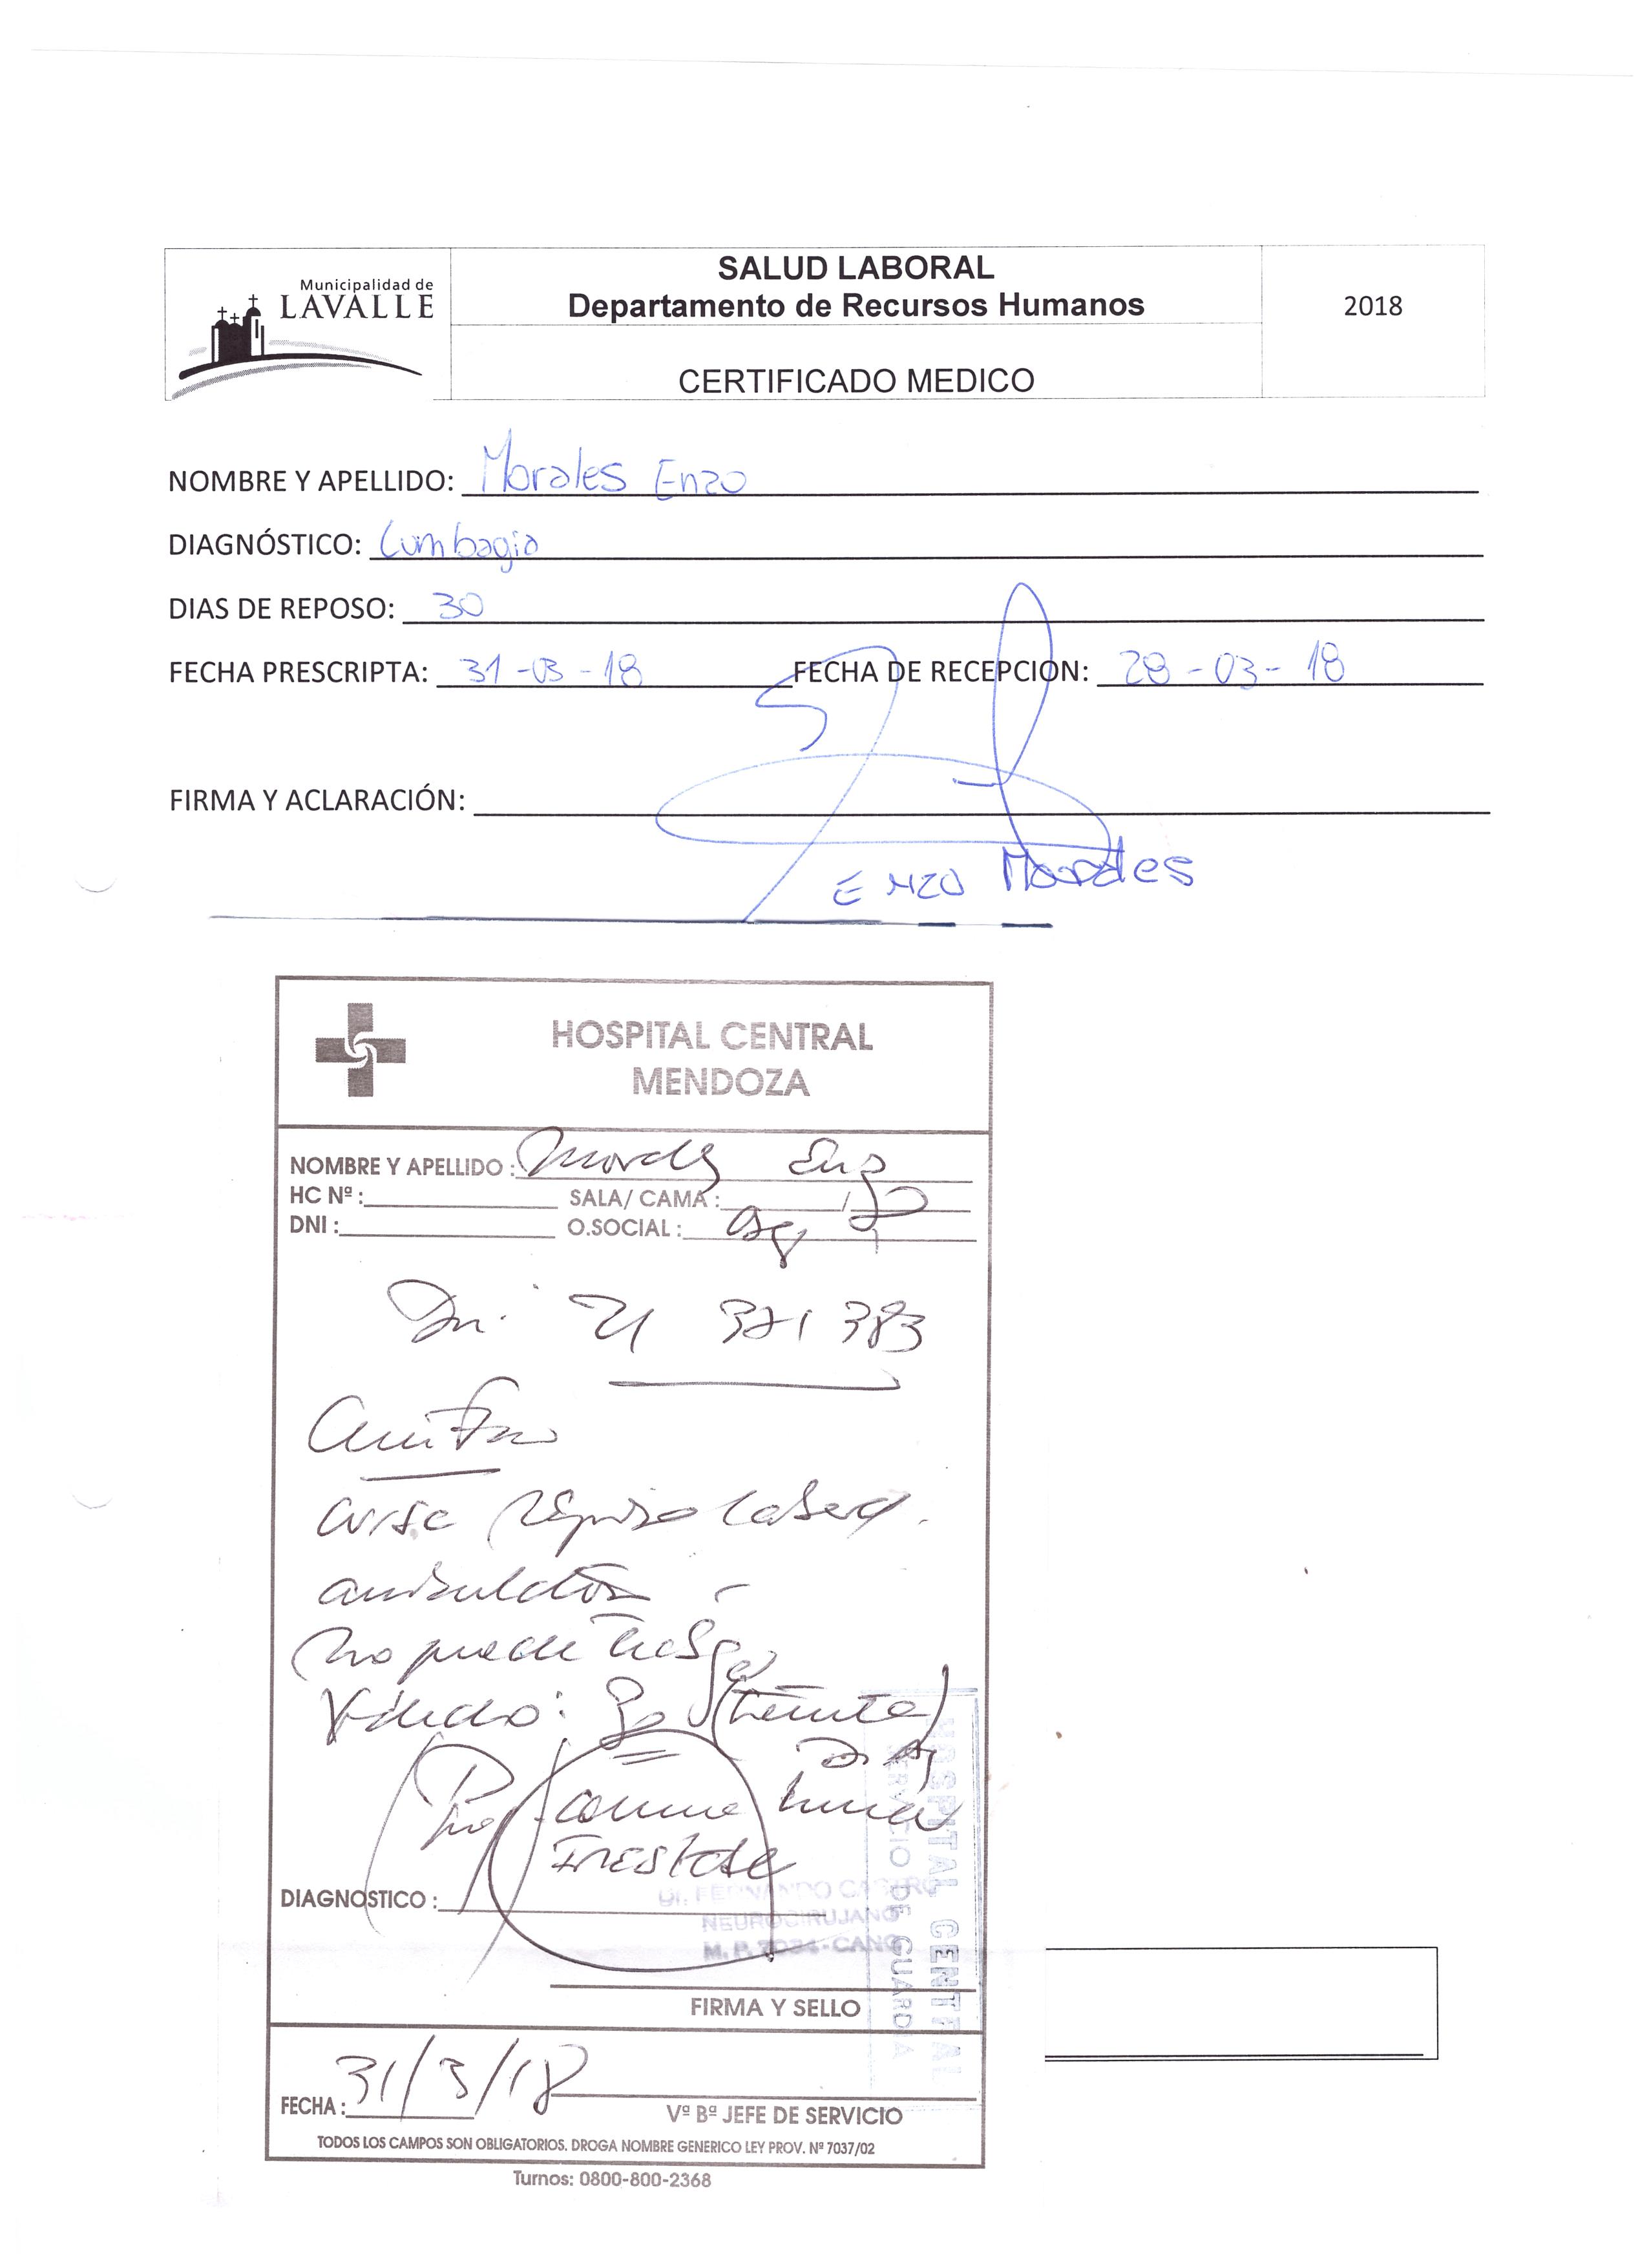 Municipalidad de
LAVALLE
SALUD LABORAL
Departamento de Recursos Humanos
2018
CERTIFICADO MEDICO
NOMBRE Y APELLIDO: Morales Enzo
DIAGNÓSTICO: Lumbagia
DIAS DE REPOSO: 30
FECHA PRESCRIPTA: 31-03-18 FECHA DE RECEPCION: 28-03-18
FIRMA Y ACLARACIÓN:
Enzo Morales
HOSPITAL CENTRAL
MENDOZA
NOMBRE Y APELLIDO: Morales Enzo
HC Nº: SALA/ CAMA: /
DNI: O.SOCIAL:
Dni. 21 371 383
reposo laboral
no puede
30 (treinta)
Dias
columna lumbar
inestable
DIAGNOSTICO:
Dr. FERNANDO CASTRO
NEUROCIRUJANO
HOSPITAL CENTRAL
SERVICIO DE GUARDIA
FIRMA Y SELLO
FECHA: 31/3/18
Vº Bº JEFE DE SERVICIO
TODOS LOS CAMPOS SON OBLIGATORIOS. DROGA NOMBRE GENERICO LEY PROV. Nº 7037/02
Turnos: 0800-800-2368